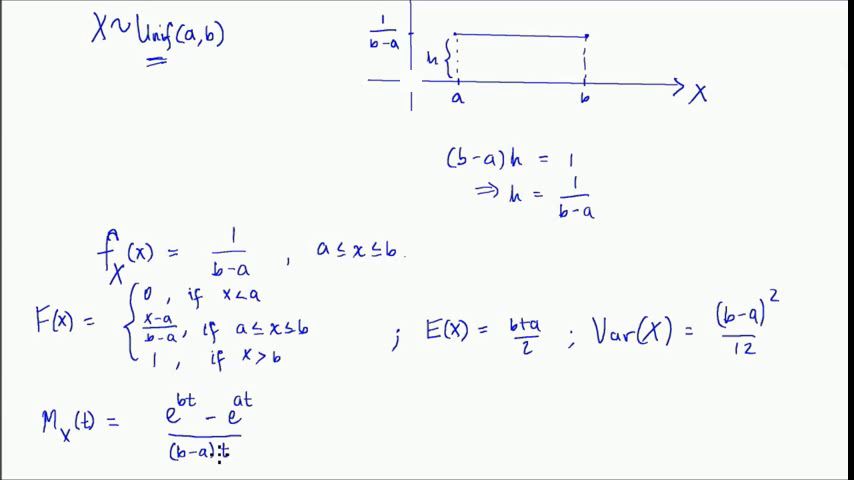 X ~ Unif(a,b)
1/(b-a)
h
a b X
(b-a)h = 1
⇒ h = 1/(b-a)
f_X(x) = 1/(b-a) , a ≤ x ≤ b.
F(x) = { 0 , if x < a
(x-a)/(b-a), if a ≤ x ≤ b ; E(X) = (b+a)/2 ; Var(X) = (b-a)²/12
1 , if x > b
M_X(t) = (e^{bt} - e^{at})/((b-a)t)